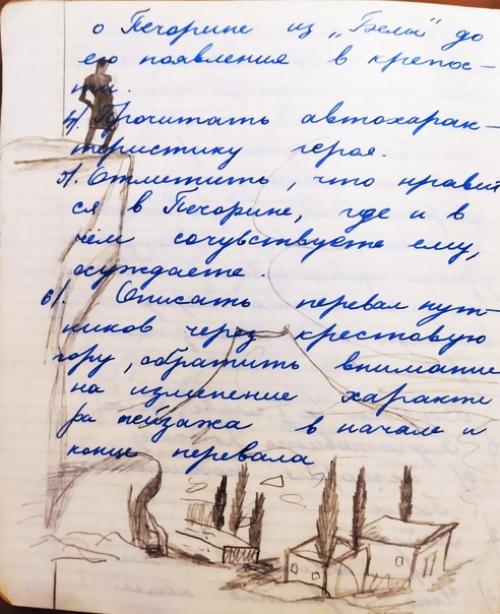 о Печорине из „Белы" до
его появления в крепос-
ти.
4). Прочитать автохарак-
теристику героя.
5). Отметить, что нравит
ся в Печорине, где и в
чём сочувствуете ему,
осуждаете.
6). Описать перевал пут-
ников через крестовую
гору, обратить внимание
на изменение характе
ра пейзажа в начале и
конце перевала